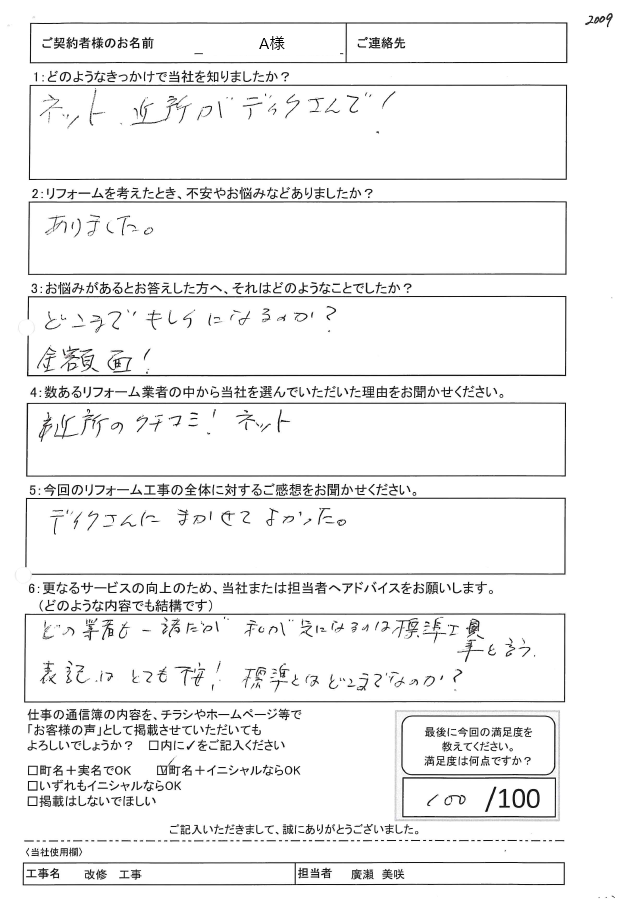 2009
ご契約者様のお名前 A様 ご連絡先
1：どのようなきっかけで当社を知りましたか？
ネット、近所がディクさんで！
2：リフォームを考えたとき、不安やお悩みなどありましたか？
ありました。
3：お悩みがあるとお答えした方へ、それはどのようなことでしたか？
どこまでキレイになるのか？
金額面！
4：数あるリフォーム業者の中から当社を選んでいただいた理由をお聞かせください。
近所のクチコミ！ネット
5：今回のリフォーム工事の全体に対するご感想をお聞かせください。
ディクさんにまかせてよかった。
6：更なるサービスの向上のため、当社または担当者へアドバイスをお願いします。
（どのような内容でも結構です）
どの業者も一緒だが 私が気になるのは標準工事と言う
表記はとても不安！標準とはどこまでなのか？
仕事の通信簿の内容を、チラシやホームページ等で
「お客様の声」として掲載させていただいても
よろしいでしょうか？ □内に✓をご記入ください
□町名＋実名でOK ☑町名＋イニシャルならOK
□いずれもイニシャルならOK
□掲載はしないでほしい
最後に今回の満足度を
教えてください。
満足度は何点ですか？
100 /100
ご記入いただきまして、誠にありがとうございました。
〈当社使用欄〉
工事名 改修 工事 担当者 廣瀬 美咲